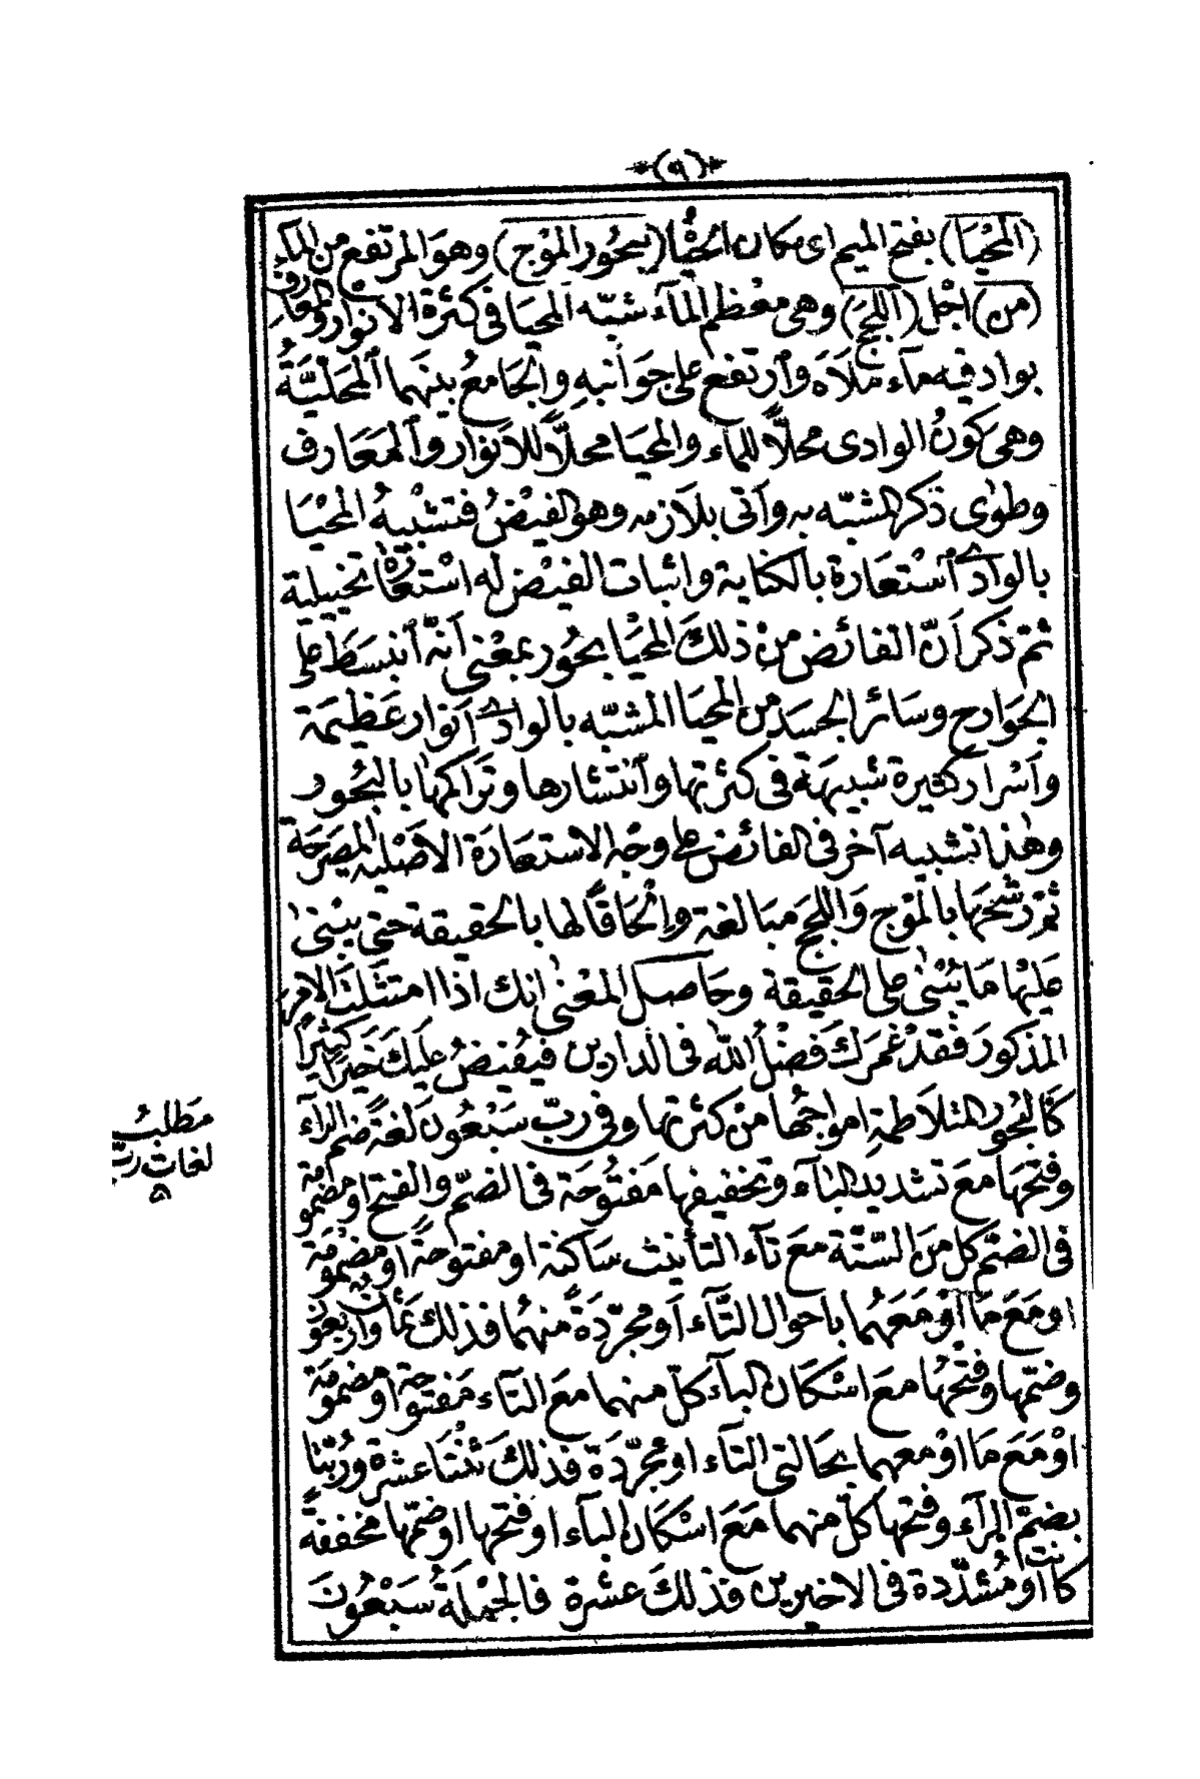 (٩)
(المحْيَا) بفتح الميم اى مكان الحيٰا (بِبحُور المَوْج) وهوَ المرتفع من المآء
(من) اجْل (اللجج) وهى معْظم المآء شبّه المحْيَا فى كثرة الانوار والمعارف
بواد فيه مآء مَلَاَه وَٱرتفع على جَوَانبهِ والجَامعُ بينهما ٱلمَحَليَّةُ
وهى كونُ الوادى محلاًّ للمآء والمحيَا محلاًّ للانوَار وَٱلمَعَارف
وطوٰى ذكر المشبّه به وَاَتى بلَازمه وهو الفيْضُ فتشْبيهُ المحْيَا
بالوادى ٱسْتعَارة بالكناية واثبات الفيْض له اسْتعَارَة تخييلية
ثمّ ذكر اَنّ الفائض مِنْ ذلكَ المحْيَا بحُور بمعْنى اَنّه ٱنبَسَطَ على
الجَوارح وسَائر الجسَد من المحيَا المشبّه بالوادى اَنوار عَظيمَة
وَاَسْرار كثيرة شبيهَة فى كثرتها وٱنتشارها وتَرَاكمهَا بالبُحُور
وهٰذا تشبيه آخر فى الفائض على وجْه الاسْتعَارَة الاَصْلية المصَرحَة
ثمّ رشحَهَا بالمَوج وَاللجَج مبَالغة وَاِلْحَاقًا لها بالحقيقة حتى يبْنىٰ
عَليْهَا مَا يُبْنىٰ على الحَقيقة وحَاصل المعْنىٰ انك اذا امتثلتَ الامرَ
المذكورَ فقدْ غمَركَ فَضْلُ اللّٰه فى الدارين فيُفيضُ عليكَ خَيرًا كثيرًا
كَالبُحُور المتلَاطمةِ امواجُهَا منْ كثرتها وفى ربّ سَبْعُونَ لغةً ضم الرآء
وفتحهَا معَ تشديد البآء وتخفيفها مَفتوُحَة فى الضمّ والفتح او مضمومَة
فى الضمّ كل منَ السّتّة معَ تآء التأنيث سَاكنة او مفتوحةً او مضْمومَة
او مَعَ مَا اَوْ مَعَهُما باَحوال التّآء اَو مجرّدَة منهُما فذلك ثمان وَاربعوُن
وضمّها وفتْحُها معَ اسْكَان البآء كلّ منهما معَ التآء مَفتوحة او مضمومَة
اوْ مَعَ مَا اوْ معهما بحَالتى التآء او مجرّدَة فذلكَ ثنْتَا عشرة ورُبّتا
بضمّ الرآء وفتحها كلّ منهما مَعَ اسْكَان البآء او فتحها او ضمّها مخففةً
كانت او مُشدّدة فى الاخيرين فذلكَ عشرة فالجمْلةُ سَبْعُونَ
مَطلبُ
لغات ربّ